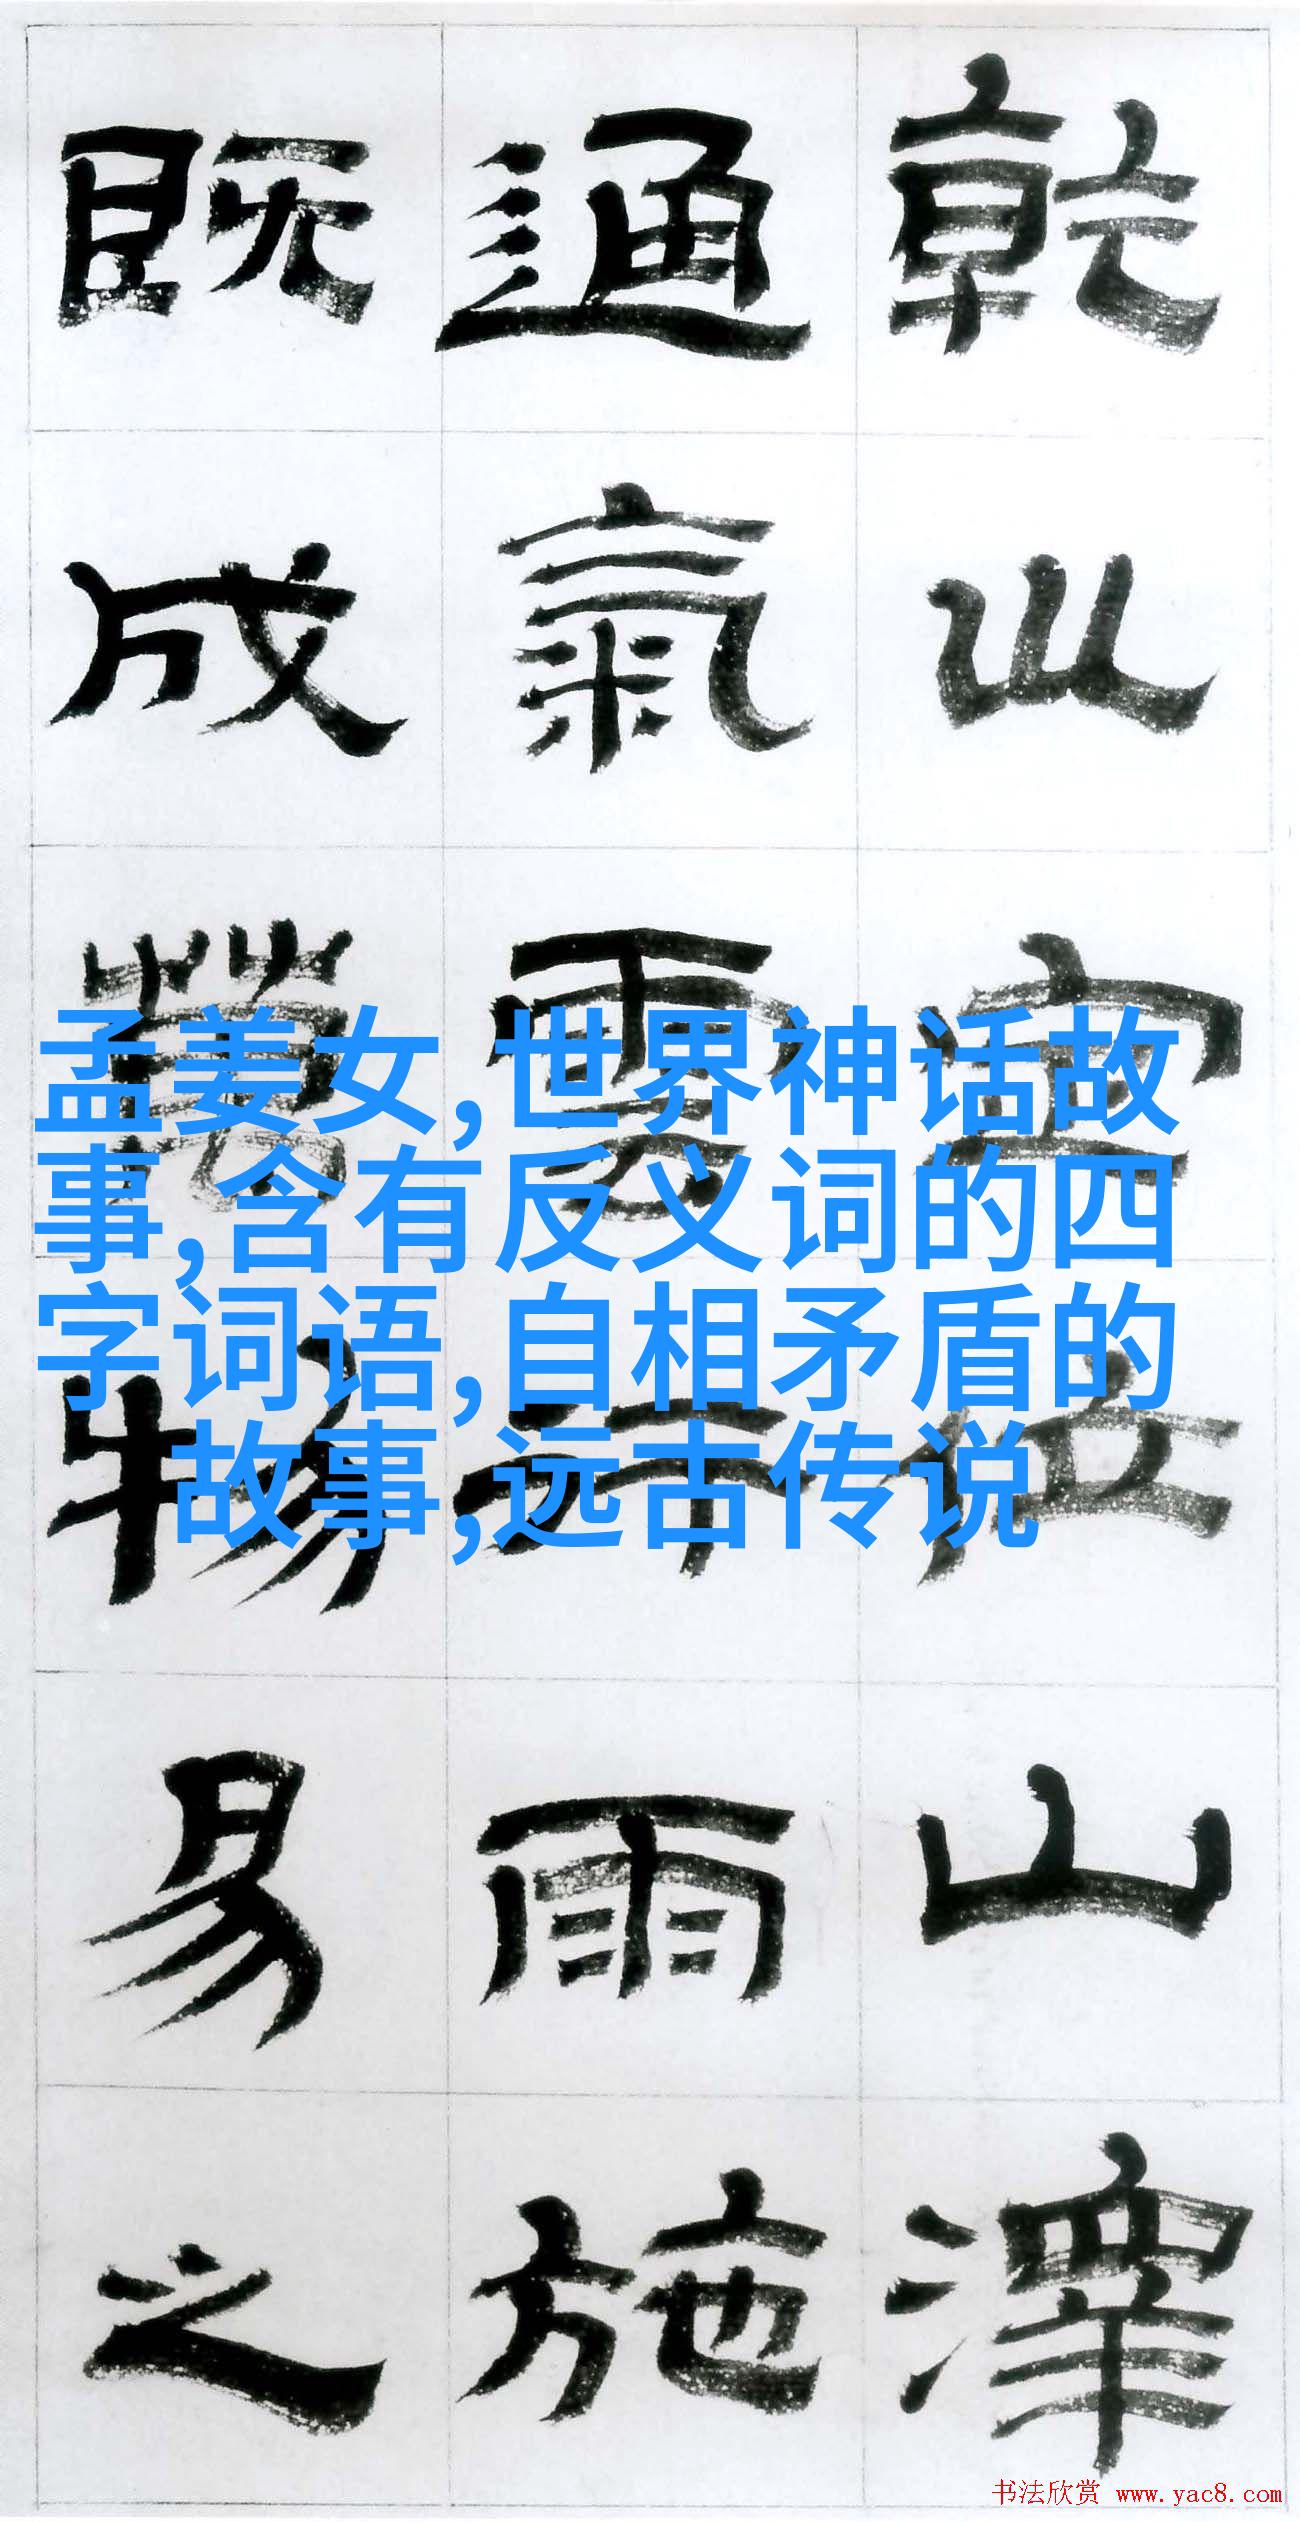 乾坤定位山澤
通氣雲行雨施
既成萬物易之
孟姜女,世界神话故
事,含有反义词的四
字词语,自相矛盾的
故事,远古传说
书法欣赏 www.yac8.com